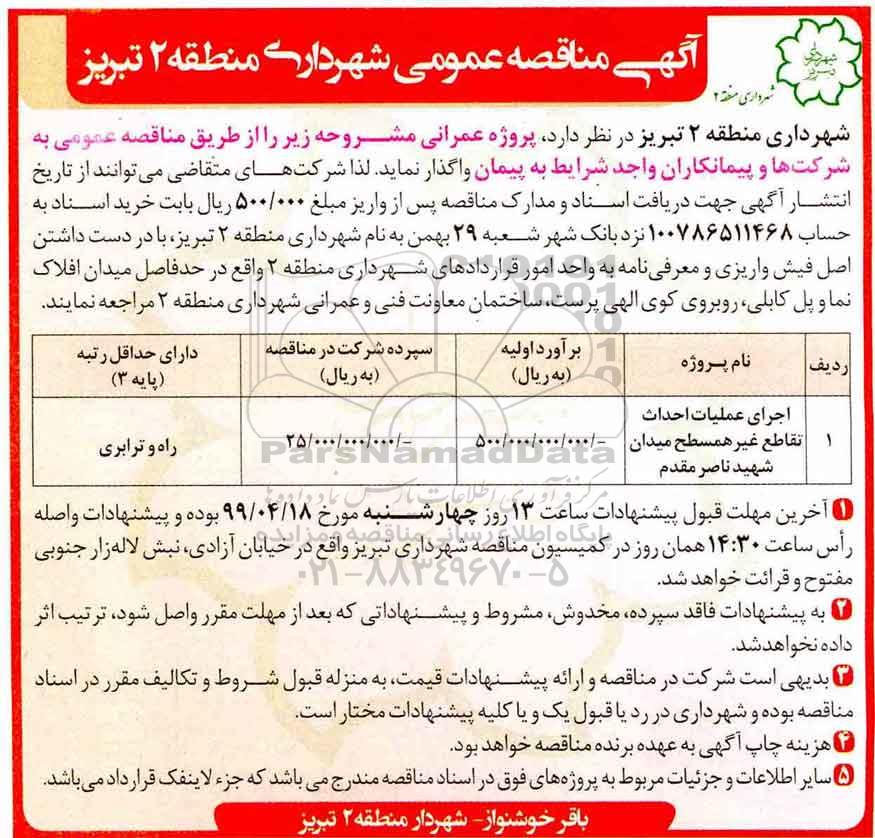 آگهی مناقصه عمومی شهرداری منطقه ۲ تبریز
شهرداری تبریز
شهرداری منطقه ۲
شهرداری منطقه ۲ تبریز در نظر دارد، پروژه عمرانی مشروحه زیر را از طریق مناقصه عمومی به
شرکت‌ها و پیمانکاران واجد شرایط به پیمان واگذار نماید. لذا شرکت‌های متقاضی می‌توانند از تاریخ
انتشار آگهی جهت دریافت اسناد و مدارک مناقصه پس از واریز مبلغ ۵۰۰/۰۰۰ ریال بابت خرید اسناد به
حساب ۱۰۰۷۸۶۵۱۱۴۶۸ نزد بانک شهر شعبه ۲۹ بهمن به نام شهرداری منطقه ۲ تبریز، با در دست داشتن
اصل فیش واریزی و معرفی‌نامه به واحد امور قراردادهای شهرداری منطقه ۲ واقع در حدفاصل میدان افلاک
نما و پل کابلی، روبروی کوی الهی پرست، ساختمان معاونت فنی و عمرانی شهرداری منطقه ۲ مراجعه نمایند.
ردیف
نام پروژه
برآورد اولیه
(به ریال)
سپرده شرکت در مناقصه
(به ریال)
دارای حداقل رتبه
(پایه ۳)
۱
اجرای عملیات احداث
تقاطع غیر همسطح میدان
شهید ناصر مقدم
۵۰۰/۰۰۰/۰۰۰/۰۰۰/-
۲۵/۰۰۰/۰۰۰/۰۰۰/-
راه و ترابری
ParsNamadData
مرکز فرآوری اطلاعات پارس نماد داده‌ها
پایگاه اطلاع رسانی مناقصه و مزایده
۰۲۱-۸۸۳۴۹۶۷۰-۵
۱ آخرین مهلت قبول پیشنهادات ساعت ۱۳ روز چهارشنبه مورخ ۹۹/۰۴/۱۸ بوده و پیشنهادات واصله
رأس ساعت ۱۴:۳۰ همان روز در کمیسیون مناقصه شهرداری تبریز واقع در خیابان آزادی، نبش لاله‌زار جنوبی
مفتوح و قرائت خواهد شد.
۲ به پیشنهادات فاقد سپرده، مخدوش، مشروط و پیشنهاداتی که بعد از مهلت مقرر واصل شود، ترتیب اثر
داده نخواهد شد.
۳ بدیهی است شرکت در مناقصه و ارائه پیشنهادات قیمت، به منزله قبول شروط و تکالیف مقرر در اسناد
مناقصه بوده و شهرداری در رد یا قبول یک و یا کلیه پیشنهادات مختار است.
۴ هزینه چاپ آگهی به عهده برنده مناقصه خواهد بود.
۵ سایر اطلاعات و جزئیات مربوط به پروژه‌های فوق در اسناد مناقصه مندرج می باشد که جزء لاینفک قرارداد می‌باشد.
باقر خوشنواز - شهردار منطقه ۲ تبریز